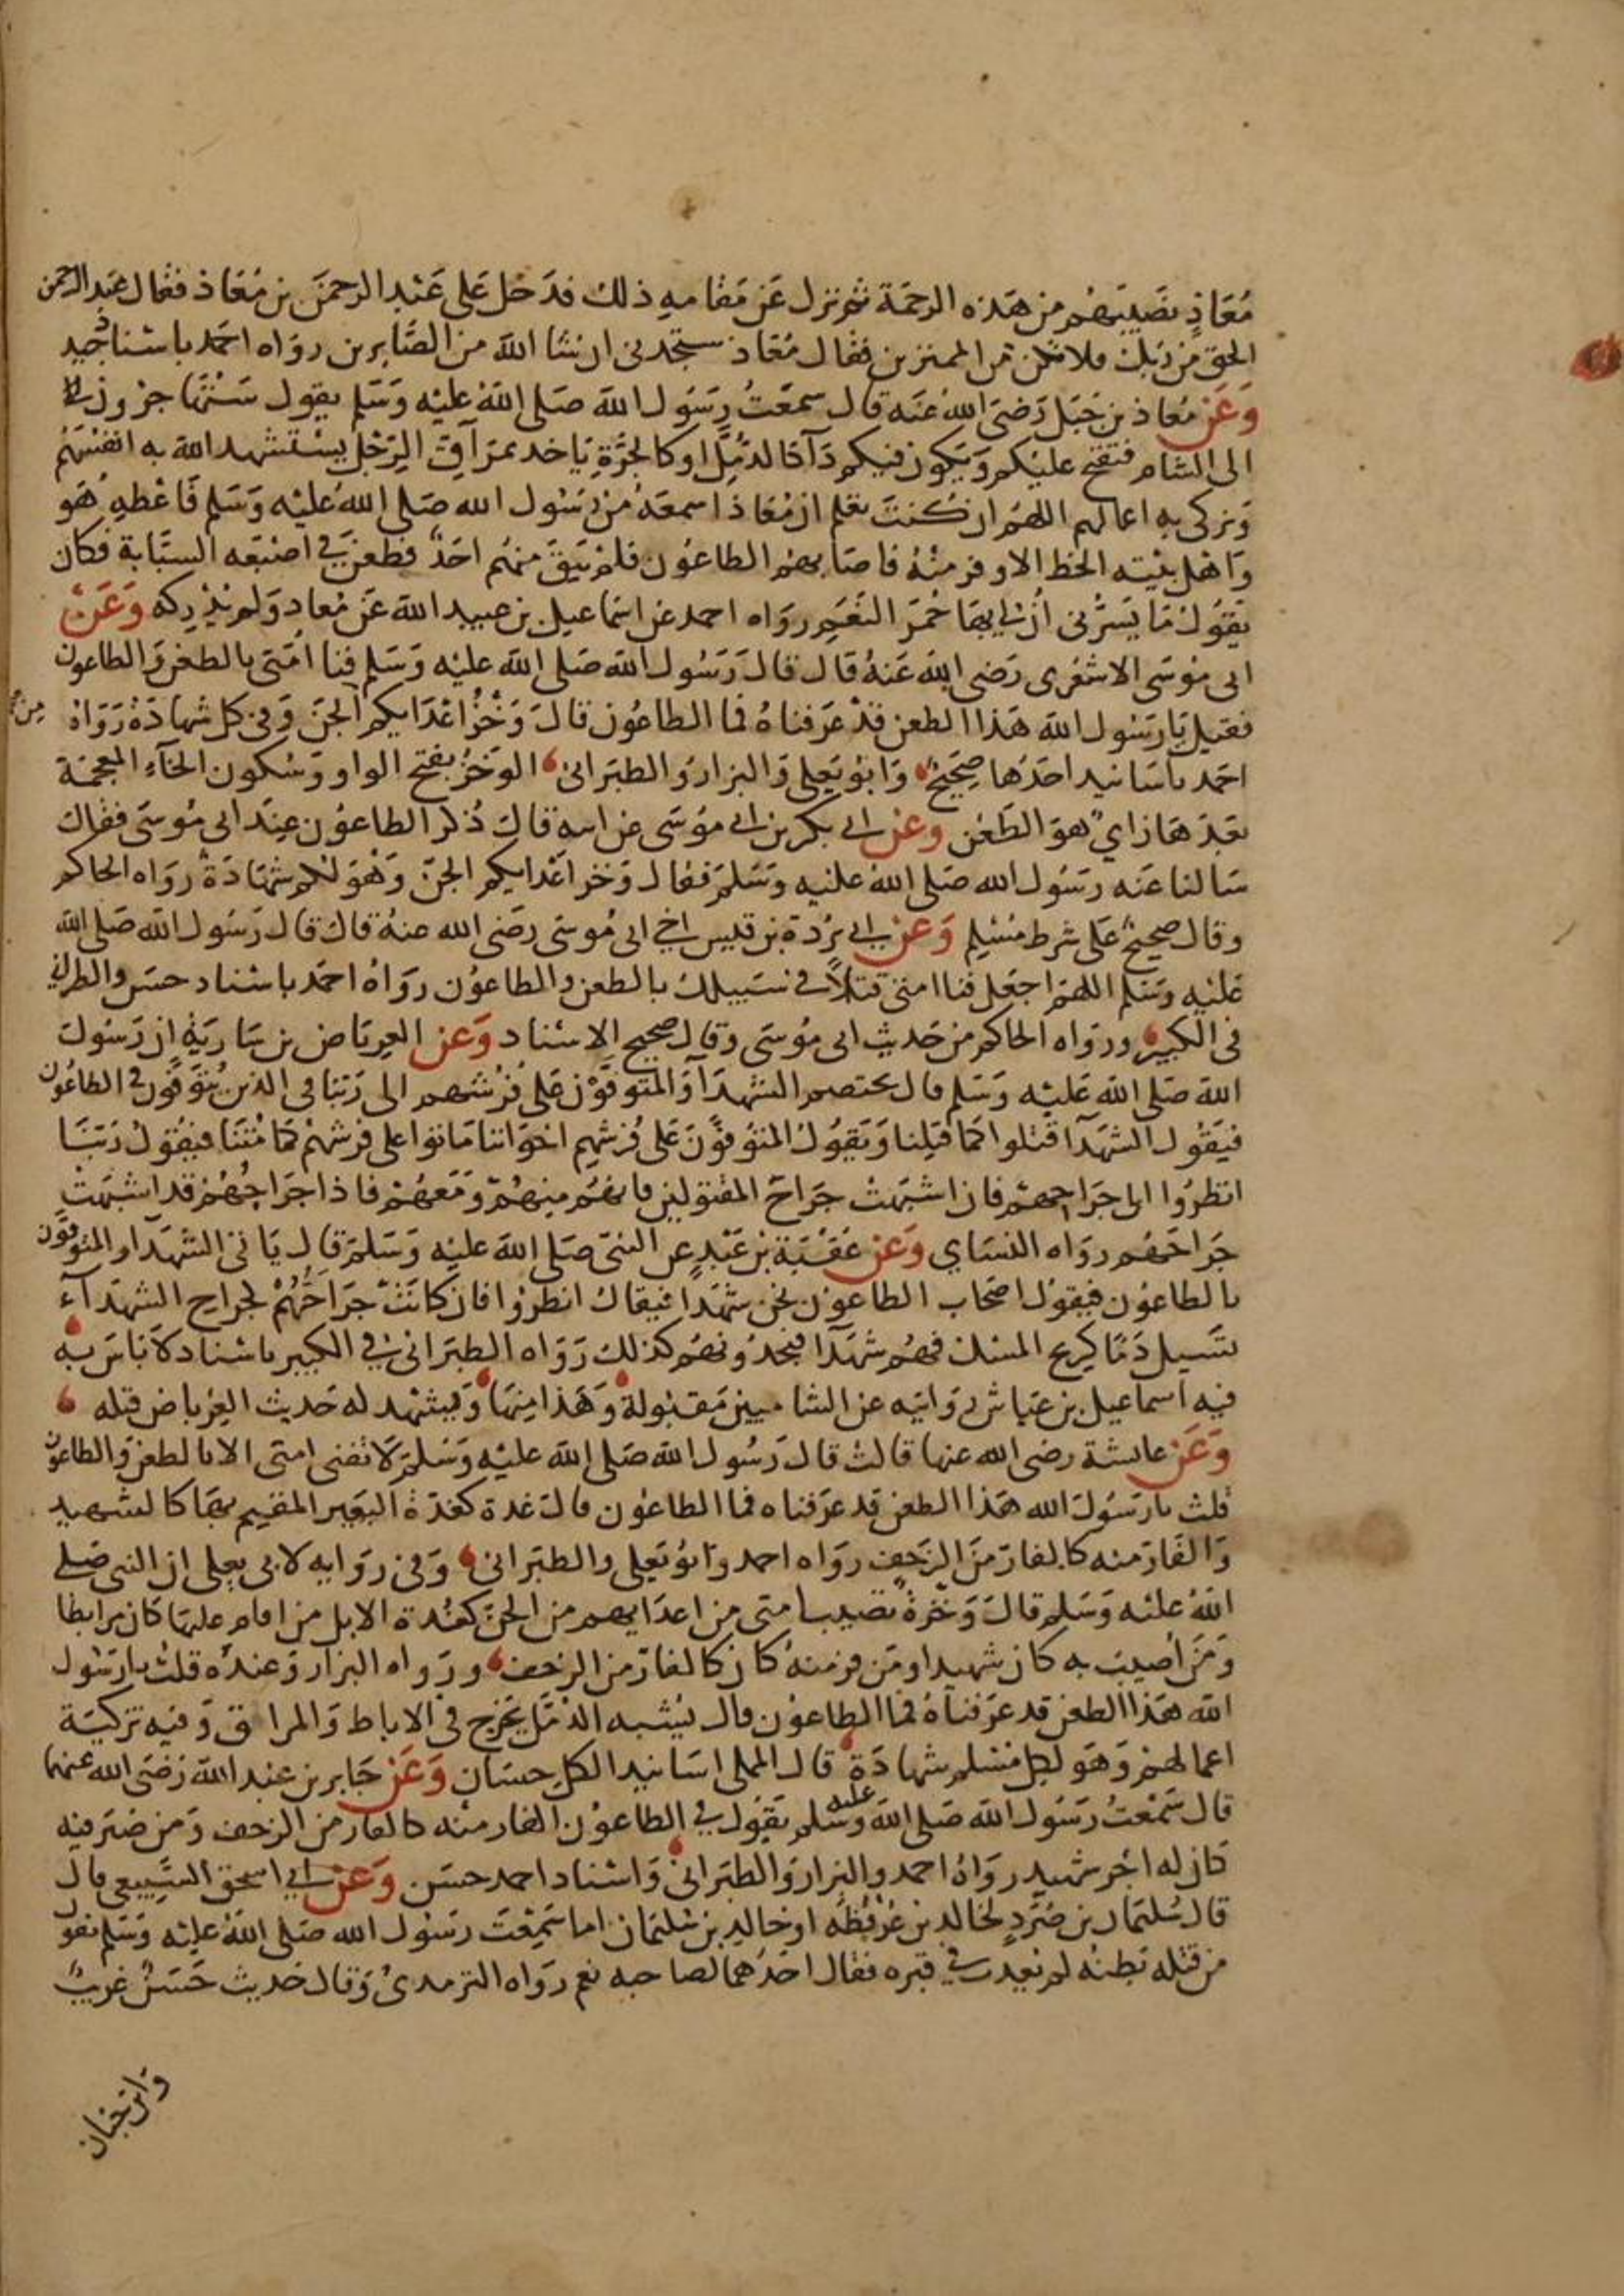 مُعَاذٍ نَصيبَهُم من هَذه الرحمَة ثم نزل عَن مَقامهِ ذلك فدَخل عَلى عَبْد الرحمنَ بن مُعَاذ فقال عَبد الرحمن
الحق من رَبك فلا تكن من الممترين فقال مُعَاذ ستجدني ان شا الله من الصَّابرين روَاه احمَد باسْناد جيد
وَعَن مُعاذ بن جَبَل رَضىَ اللهُ عَنه قال سمعَتُ رسَوُل الله صَلى اللهُ عليْه وَسَلم يقول سَتُهَاجرُون
الى الشام فتفتح عليْكم وَيكون فيكم دَآء كالدُمَّل او كالحزَّةِ يَاخد بمرَآقِ الرَّجُل يسْتشهد الله به انفسَهُم
وَيزكى به اعمالهم اللهُم ان كُنتَ تعلم ان مُعَاذا سمعَهُ من رَسُول الله صَلى اللهُ عليْه وَسَلم فَاعْطهِ هُو
وَاهْل بيْته الحَظ الاوفر منْهُ فاصَابهمُ الطاعُون فلمْ يَبقَ منهُم احَدٌ فطعنَ في اصْبَعه السبَّابة فكان
يَقوُل مَا يَسُرُّنى اَنَّ لي بهَا حُمرَ النَّعَمِ روَاه احمد عن اسمَاعيل بن عبيد الله عَن مُعاد وَلم يُدْركه وَعَنْ
ابى مُوسَى الاشعَرى رَضى الله عَنهُ قال قالَ رَسُول الله صَلى الله عليْه وَسَلم فنا اُمَّتى بالطعْن وَالطاعون
فقيل يَا رَسُول الله هَذا الطعن قدْ عَرَفناهُ فما الطاعُون قالَ وَخْزُ اعْدَايكم الجنّ وَفى كل شهادَة رَوَاهُ
احمَد باسَانيد احَدُهَا صَحِيحٌ وَابُو يَعلى وَالبزار وَالطبَرانىُ الوَخْز بفتح الواو وَسُكون الخآء المعجمَة
بَعدَهَا زايٌ هوَ الطَعْن وَعن ابي بكر بن ابي موُسَى عَن ابيهِ قاك ذُكرَ الطاعوُن عِندَ ابى مُوسَى فقاك
سَالنا عَنه رسَوُل الله صَلى اللهُ عليْه وَسَلمَ فقال وَخز اعْدايكم الجنّ وَهْوَ لكم شهَادَةٌ روَاه الحاكم
وقال صحيحٌ عَلى شرط مسْلِم وَعن ابي بُرْدة بن قيس اخي ابى مُوسَى رضَى الله عنهُ قاك قال رَسُول الله صَلى الله
عَليْه وَسَلم اللهمَّ اجعَل فنا امتي قتلاً في سَبيلك بالطعن والطاعوُن روَاهُ احمَد باسْناد حسَن والطبراني
في الكبير وروَاه الحاكم من حَديث ابى مُوسَى وَقال صحيح الاسْناد وَعَن العِربَاض بن سَاريَة ان رَسُول
الله صَلى الله عَليْه وَسَلم قال يختصم الشهدَآ وَالمتوفوْن عَلى فرُشهم الى رَبنا في الذين يُتوَفوْن في الطاعُون
فيَقوُل الشهَدَآ قُتلوا كمَا قُتِلنا وَيَقُول المتوُفوْنَ عَلى فُرُشهم اخوَاننا مَاتوا على فُرشهمْ كمَا مُتْنَا فيقُول رَبنَا
انظرُوا الى جَراحهمْ فان اشبَهتْ جَراحَ المقتولين فانهُم منهُمْ وَمَعَهُمْ فاذا جرَاحُهُمْ قد اشبَهَتْ
جَرَاحَهُم روَاه النسَاي وَعَن عُتْبَة بن عَبْدٍ عن النبيّ صَلى الله عليْه وَسَلم قال يَاتي الشهَدَا وَالمتوفوْن
بالطاعُون فيقوُل اصحَاب الطاعوْن نحن شهَدَا فيقاك انظرُوا فان كانتْ جَرَاحُهُمْ كجراحِ الشهَدآء
تسَيل دَمًا كريح المسْك فهُم شهَدَآ فيجدُونهُم كذلك رَوَاه الطبَرانىُ في الكبير باسْناد لاَ بَاسَ بهْ
فيه اسمَاعيل بن عيَاش روَايته عن الشاميين مَقبُولة وَهَذا منهَا وَيشهَد له حَديث العِرْبَاض قبله
وَعَن عائشة رضى الله عنها قالتْ قالَ رَسُول الله صَلى الله عليْه وَسَلم لاَ تفنى امتى الا بالطعن وَالطاعون
قلتُ يا رسَوُل الله هَذا الطعن قد عرَفناه فما الطاعُون قال غدة كغدّة البَعير المقيم بهَا كالشهيد
وَالفَارّ منه كالفارّ منَ الزحَف روَاه احمد وَابوُ يَعلى والطبَرانى وَفي روَايه لابى يعلى ان النبي صَلى
اللهُ عليْه وَسَلم قالَ وَخزَةٌ تصيب امتى من اعدَايهم من الجنّ كغُدة الابل من اقام عليهَا كان مرَابطا
وَمَن اُصيب به كان شهيدا ومَن فر منهُ كان كالفارّ من الزحف وروَاه البزار وَعندهُ قلتُ يا رَسُول
الله هَذا الطعن قد عَرَفناهُ فما الطاعوُن قال يشبه الدمَّل يَخرج في الاباط وَالمراق وَفيه تزكيَة
اعمالهمْ وَهوَ لكل مسْلم شهادَة قال المملى اسَانيد الكل حسَان وَعَن جَابر بن عبد الله رَضىَ الله عنهما
قال سَمعْتُ رسَوُل الله صَلى الله عليه وسَلم يَقوُل في الطاعوْن الفار منْه كالفارّ من الزحف وَمن صَبر فيه
كان له اجْر شهيد روَاهُ احمد والبزار وَالطبَرانى وَاسْناد احمد حسَن وَعَن ابي اسحق السَّبيعى قال
قال سُليمَان بن صُرَدٍ لخالد بن عُرْفُطه او خالد بن سُليمَان اما سَمِعْتَ رَسُول الله صَلى اللهُ عليْه وَسَلم يقول
من قتله بَطنُه لم يُعَذب في قبره فقال احَدُهما لصَاحبه نعم روَاه الترمدىُ وَقال حَديث حَسَنٌ غريبٌ
وَابن حبان